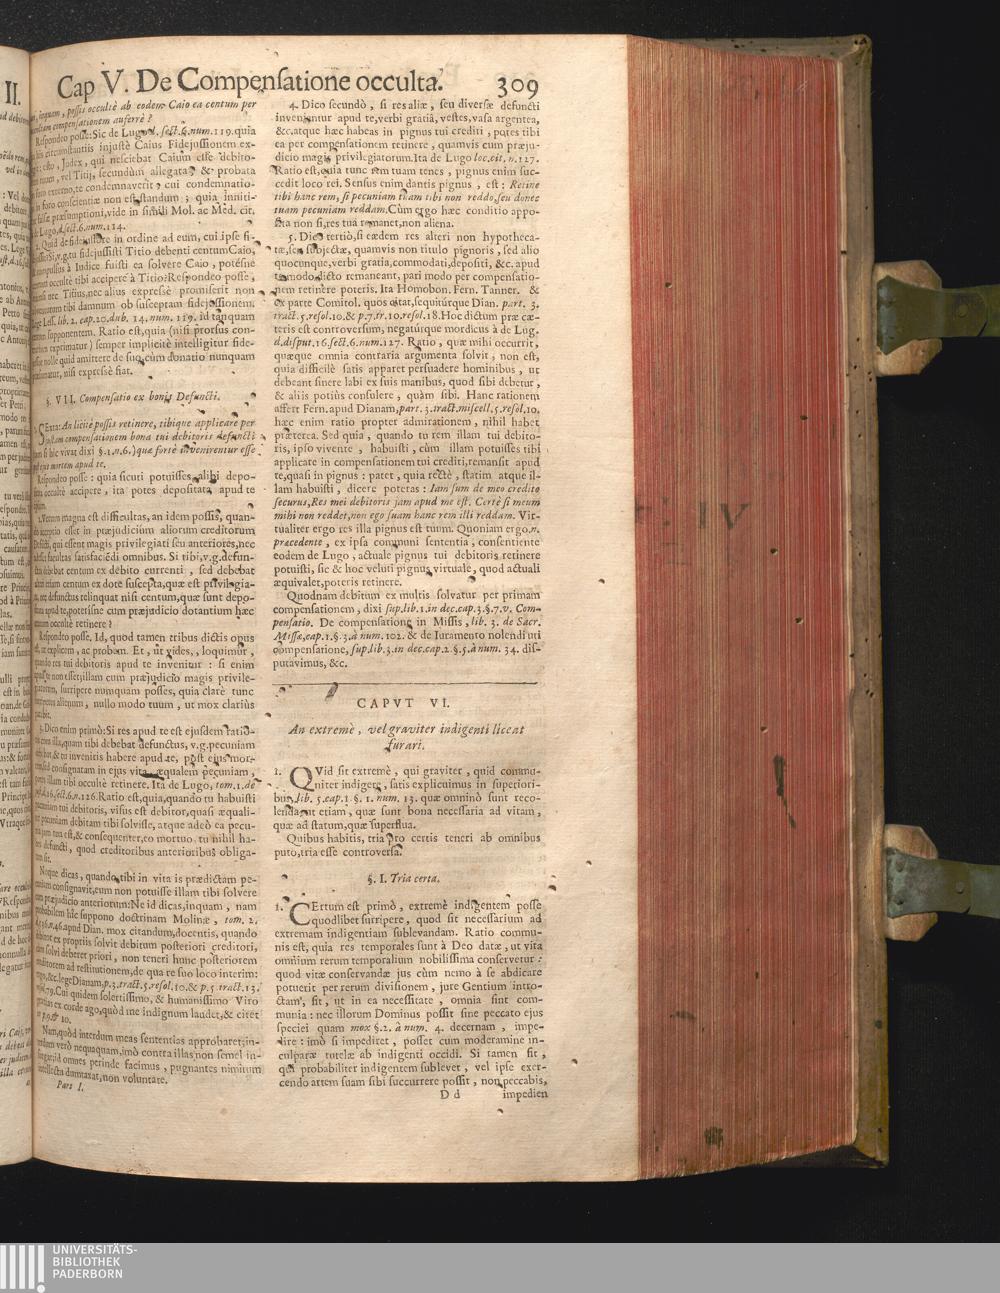 Cap V. De Compensatione occulta. 309
possis occultè ab eodem Caio ea centum per
compensationem auferrè?
Respondeo posse: Sic de Lugo d. sect. 6. num. 119. quia
injustè Caius Fidejussionem ex-
Judex, qui nesciebat Caium esse debito-
vel Titij, secundùm allegata, & probata
in foro externo, te condemnaverit, cui condemnatio-
in foro conscientiæ non est standum; quia inniti-
falsæ præsumptioni, vide in simili Mol. ac Med. cit.
de Lugo, d. sect. 6. num. 114.
Quid de fidejussore in ordine ad eum, cui ipse fi-
Si, v.g. tu fidejussisti Titio debenti centum Caio,
compulsus à Iudice fuisti ea solvere Caio, potesne
occultè tibi accipere à Titio? Respondeo posse,
nec Titius, nec alius expressè promiserit non
tibi damnum ob susceptam fidejussionem.
Less. lib. 2. cap. 20. dub. 14. num. 119. id tanquam
supponentem. Ratio est, quia (nisi prorsus con-
exprimatur) semper implicitè intelligitur fide-
nolle quid amittere de suo, cùm donatio nunquam
nisi expressè fiat.
§. VII. Compensatio ex bonis Defuncti.
Sexta: An licitè possis retinere, tibique applicare per
justam compensationem bona tui debitoris defuncti
si hic vivat dixi §. 1. n. 6.) quæ fortè invenirentur esse
mortem apud te.
Respondeo posse: quia sicuti potuisses alibi depo-
occultè accipere, ita potes depositata apud te
2. Verùm magna est difficultas, an idem possis, quan-
acceptio esset in præjudicium aliorum creditorum
Defuncti, qui essent magis privilegiati seu anteriores, nec
facultas satisfaciẽdi omnibus. Si tibi, v.g. defun-
debebat centum ex debito currenti, sed debebat
etiam centum ex dote suscepta, quæ est privilegia-
nec defunctus relinquat nisi centum, quæ sunt depo-
apud te, potesne cum præjudicio dotantium hæc
occultè retinere?
Respondeo posse. Id, quod tamen tribus dictis opus
est, ac explicem, ac probem. Et, ut vides, loquimur,
quando res tui debitoris apud te invenitur: si enim
non esset, illam cum præjudicio magis privile-
surripere nunquam posses, quia clarè tunc
alienum, nullo modo tuum, ut mox clariùs
patebit.
3. Dico enim primò: Si res apud te est ejusdem ratio-
cum illa, quam tibi debebat defunctus, v.g. pecuniam
debebat, & tu invenitis habere apud te, post ejus mor-
consignatam in ejus vita, æqualem pecuniam,
potes illam tibi occultè retinere. Ita de Lugo, tom. 1. de
16. sect. 6. n. 126. Ratio est, quia, quando tu habuisti
tui debitoris, visus est debitor, quasi æquali-
pecuniam debitam tibi solvisse, atque adeò ea pecu-
jam tua est, & consequenter, eo mortuo, tu nihil ha-
defuncti, quod creditoribus anterioribus obliga-
tum sit.
Neque dicas, quando tibi in vita is prædictam pe-
consignavit, eum non potuisse illam tibi solvere
præjudicio anteriorum: Ne id dicas, inquam, nam
probabilem hîc suppono doctrinam Molinæ, tom. 2.
n. 46. apud Dian. mox citandum, docentis, quando
ex propriis solvit debitum posteriori creditori,
solvi deberet priori, non teneri hunc posteriorem
creditorem ad restitutionem, de qua re suo loco interim:
&c. lege Dianam, p. 3. tract. 5. resol. 10. & p. 5. tract. 13.
79. Cui quidem solertissimo, & humanissimo Viro
gratias ex corde ago, quòd me indignum laudet, & citet
p. 9. tr. 10.
Nam, quòd interdum meas sententias approbaret, in-
verò nequaquam, imò contra illas, non semel in-
id omnes perinde facimus, pugnantes nimirum
intellectu dumtaxat, non voluntate.
Pars I.
4. Dico secundò, si res aliæ, seu diversæ defuncti
inveniuntur apud te, verbi gratiâ, vestes, vasa argentea,
&c. atque hæc habeas in pignus tui crediti, potes tibi
ea per compensationem retinere, quamvis cum præju-
dicio magis privilegiatorum. Ita de Lugo loc. cit. n. 127.
Ratio est, quia tunc rem tuam tenes, pignus enim suc-
cedit loco rei. Sensus enim dantis pignus, est: Retine
tibi hanc rem, si pecuniam tuam tibi non reddo, seu donec
tuam pecuniam reddam. Cùm ergo hæc conditio appo-
sita non sit, res tua remanet, non aliena.
5. Dico tertiò, si eædem res alteri non hypotheca-
tæ, seu subjectæ, quamvis non titulo pignoris, sed alio
quocunque, verbi gratia, commodati, depositi, &c. apud
te modo dicto remaneant, pari modo per compensatio-
nem retinère poteris. Ita Homobon. Fern. Tanner. &
ex parte Comitol. quos citat, sequitúrque Dian. part. 3.
tract. 5. resol. 10. & p. 7. tr. 10. resol. 18. Hoc dictum præ cæ-
teris est controversum, negatúrque mordicùs à de Lug.
d. disput. 16. sect. 6. num. 127. Ratio, quæ mihi occurrit,
quæque omnia contraria argumenta solvit, non est,
quia difficilè satis apparet persuadere hominibus, ut
debeant sinere labi ex suis manibus, quod sibi debetur,
& aliis potiùs consulere, quàm sibi. Hanc rationem
affert Fern. apud Dianam, part. 3. tract. miscell. 5. resol. 10.
hæc enim ratio propter admirationem, nihil habet
præterea. Sed quia, quando tu rem illam tui debito-
ris, ipso vivente, habuisti, cùm illam potuisses tibi
applicare in compensationem tui crediti, remansit apud
te, quasi in pignus: patet, quia rectè, statim atque il-
lam habuisti, dicere poteras: Iam sum de meo credito
securus, Res mei debitoris jam apud me est. Certè si meum
mihi non reddet, non ego suam hanc rem illi reddam. Vir-
tualiter ergo res illa pignus est tuum. Quoniam ergo, n.
præcedente, ex ipsa communi sententia, consentiente
eodem de Lugo, actuale pignus tui debitoris retinere
potuisti, sic & hoc veluti pignus virtuale, quod actuali
æquivalet, poteris retinere.
Quodnam debitum ex multis solvatur per primam
compensationem, dixi sup. lib. 1. in dec. cap. 3. §. 7. v. Com-
pensatio. De compensatione in Missis, lib. 3. de Sacr.
Missæ, cap. 1. §. 3. à num. 102. & de Iuramento nolendi uti
compensatione, sup. lib. 3. in dec. cap. 2. §. 5. à num. 34. dis-
putavimus, &c.
CAPVT VI.
An extremè, vel graviter indigenti liceat
furari.
1. QVid sit extremè, qui graviter, quid commu-
niter indigere, satis explicuimus in superiori-
bus, lib. 5. cap. 1. §. 1. num. 13. quæ omninò sunt reco-
lenda, ut etiam, quæ sunt bona necessaria ad vitam,
quæ ad statum, quæ superflua.
Quibus habitis, tria pro certis teneri ab omnibus
puto, tria esse controversa.
§. I. Tria certa.
1. CErtum est primò, extremè indigentem posse
quodlibet surripere, quod sit necessarium ad
extremam indigentiam sublevandam. Ratio commu-
nis est, quia res temporales sunt à Deo datæ, ut vita
omnium rerum temporalium nobilissima conservetur:
quod vitæ conservandæ jus cùm nemo à se abdicare
potuerit per rerum divisionem, jure Gentium intro-
ctam, fit, ut in ea necessitate, omnia sint com-
munia: nec illorum Dominus possit sine peccato ejus
speciei quam mox §. 2. à num. 4. decernam, impe-
dire: imò si impediret, posset cum moderamine in-
culpatæ tutelæ ab indigenti occidi. Si tamen sit,
qui probabiliter indigentem sublevet, vel ipse exer-
cendo artem suam sibi succurrere possit, non peccabis,
D d impedien
UNIVERSITÄTS-
BIBLIOTHEK
PADERBORN